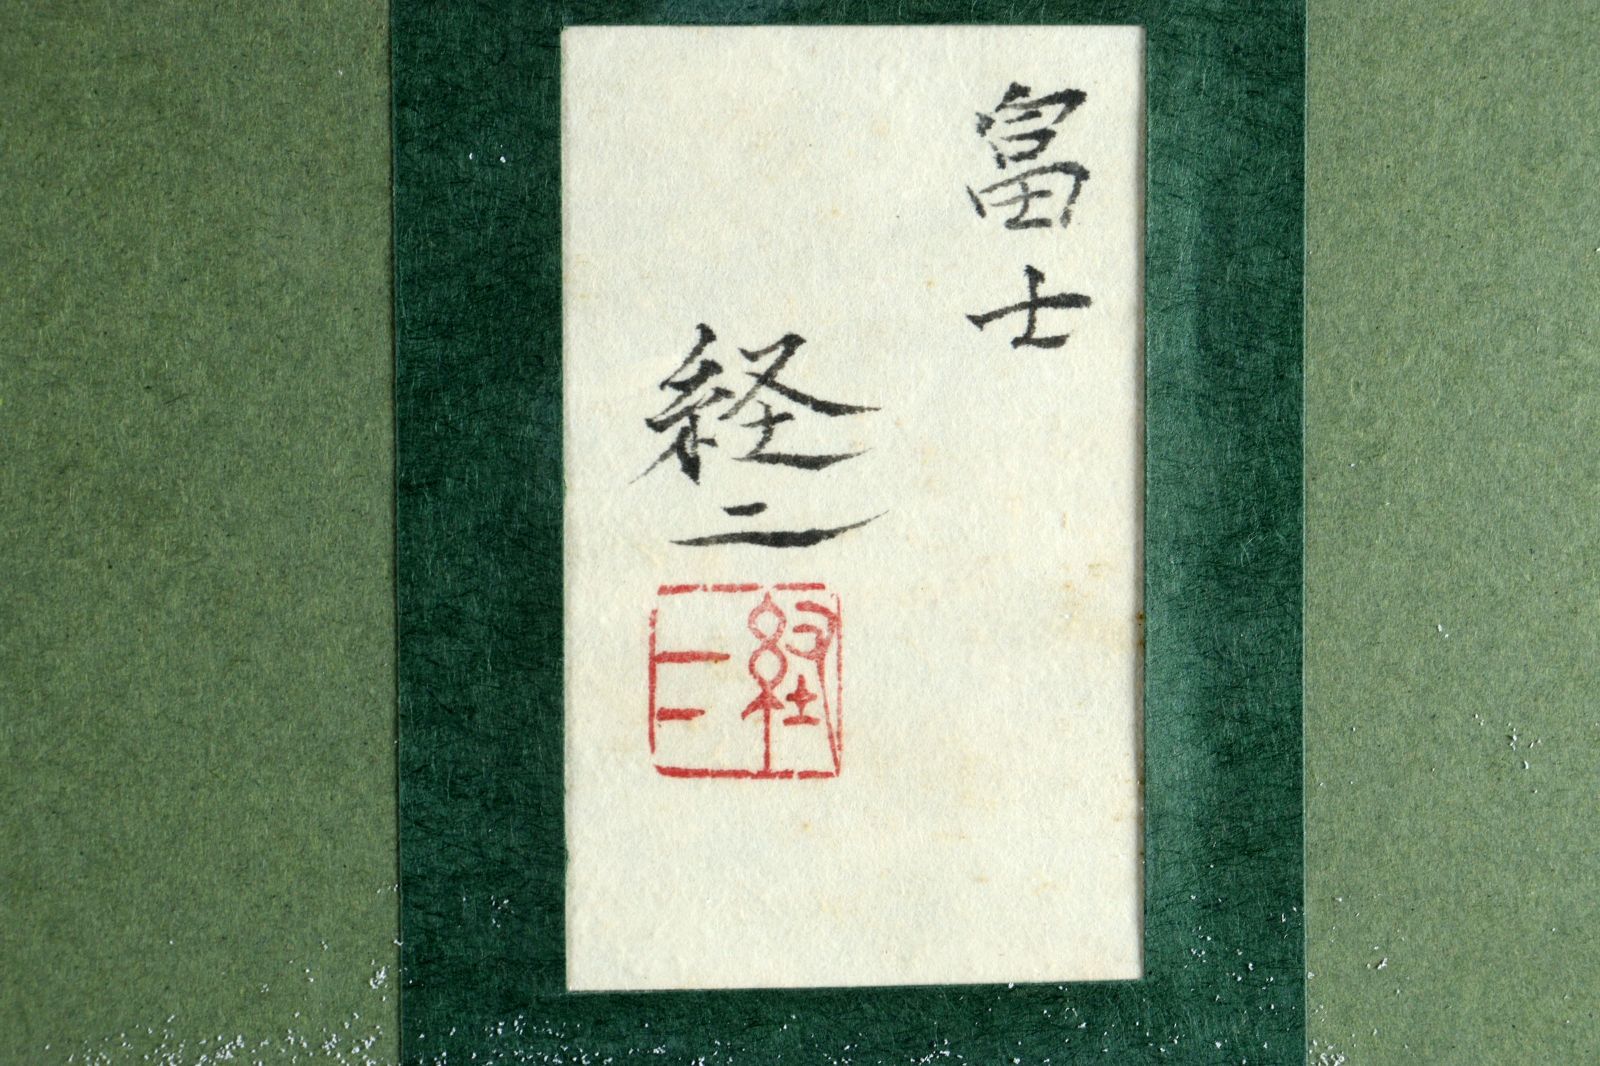 富士
経二
経二